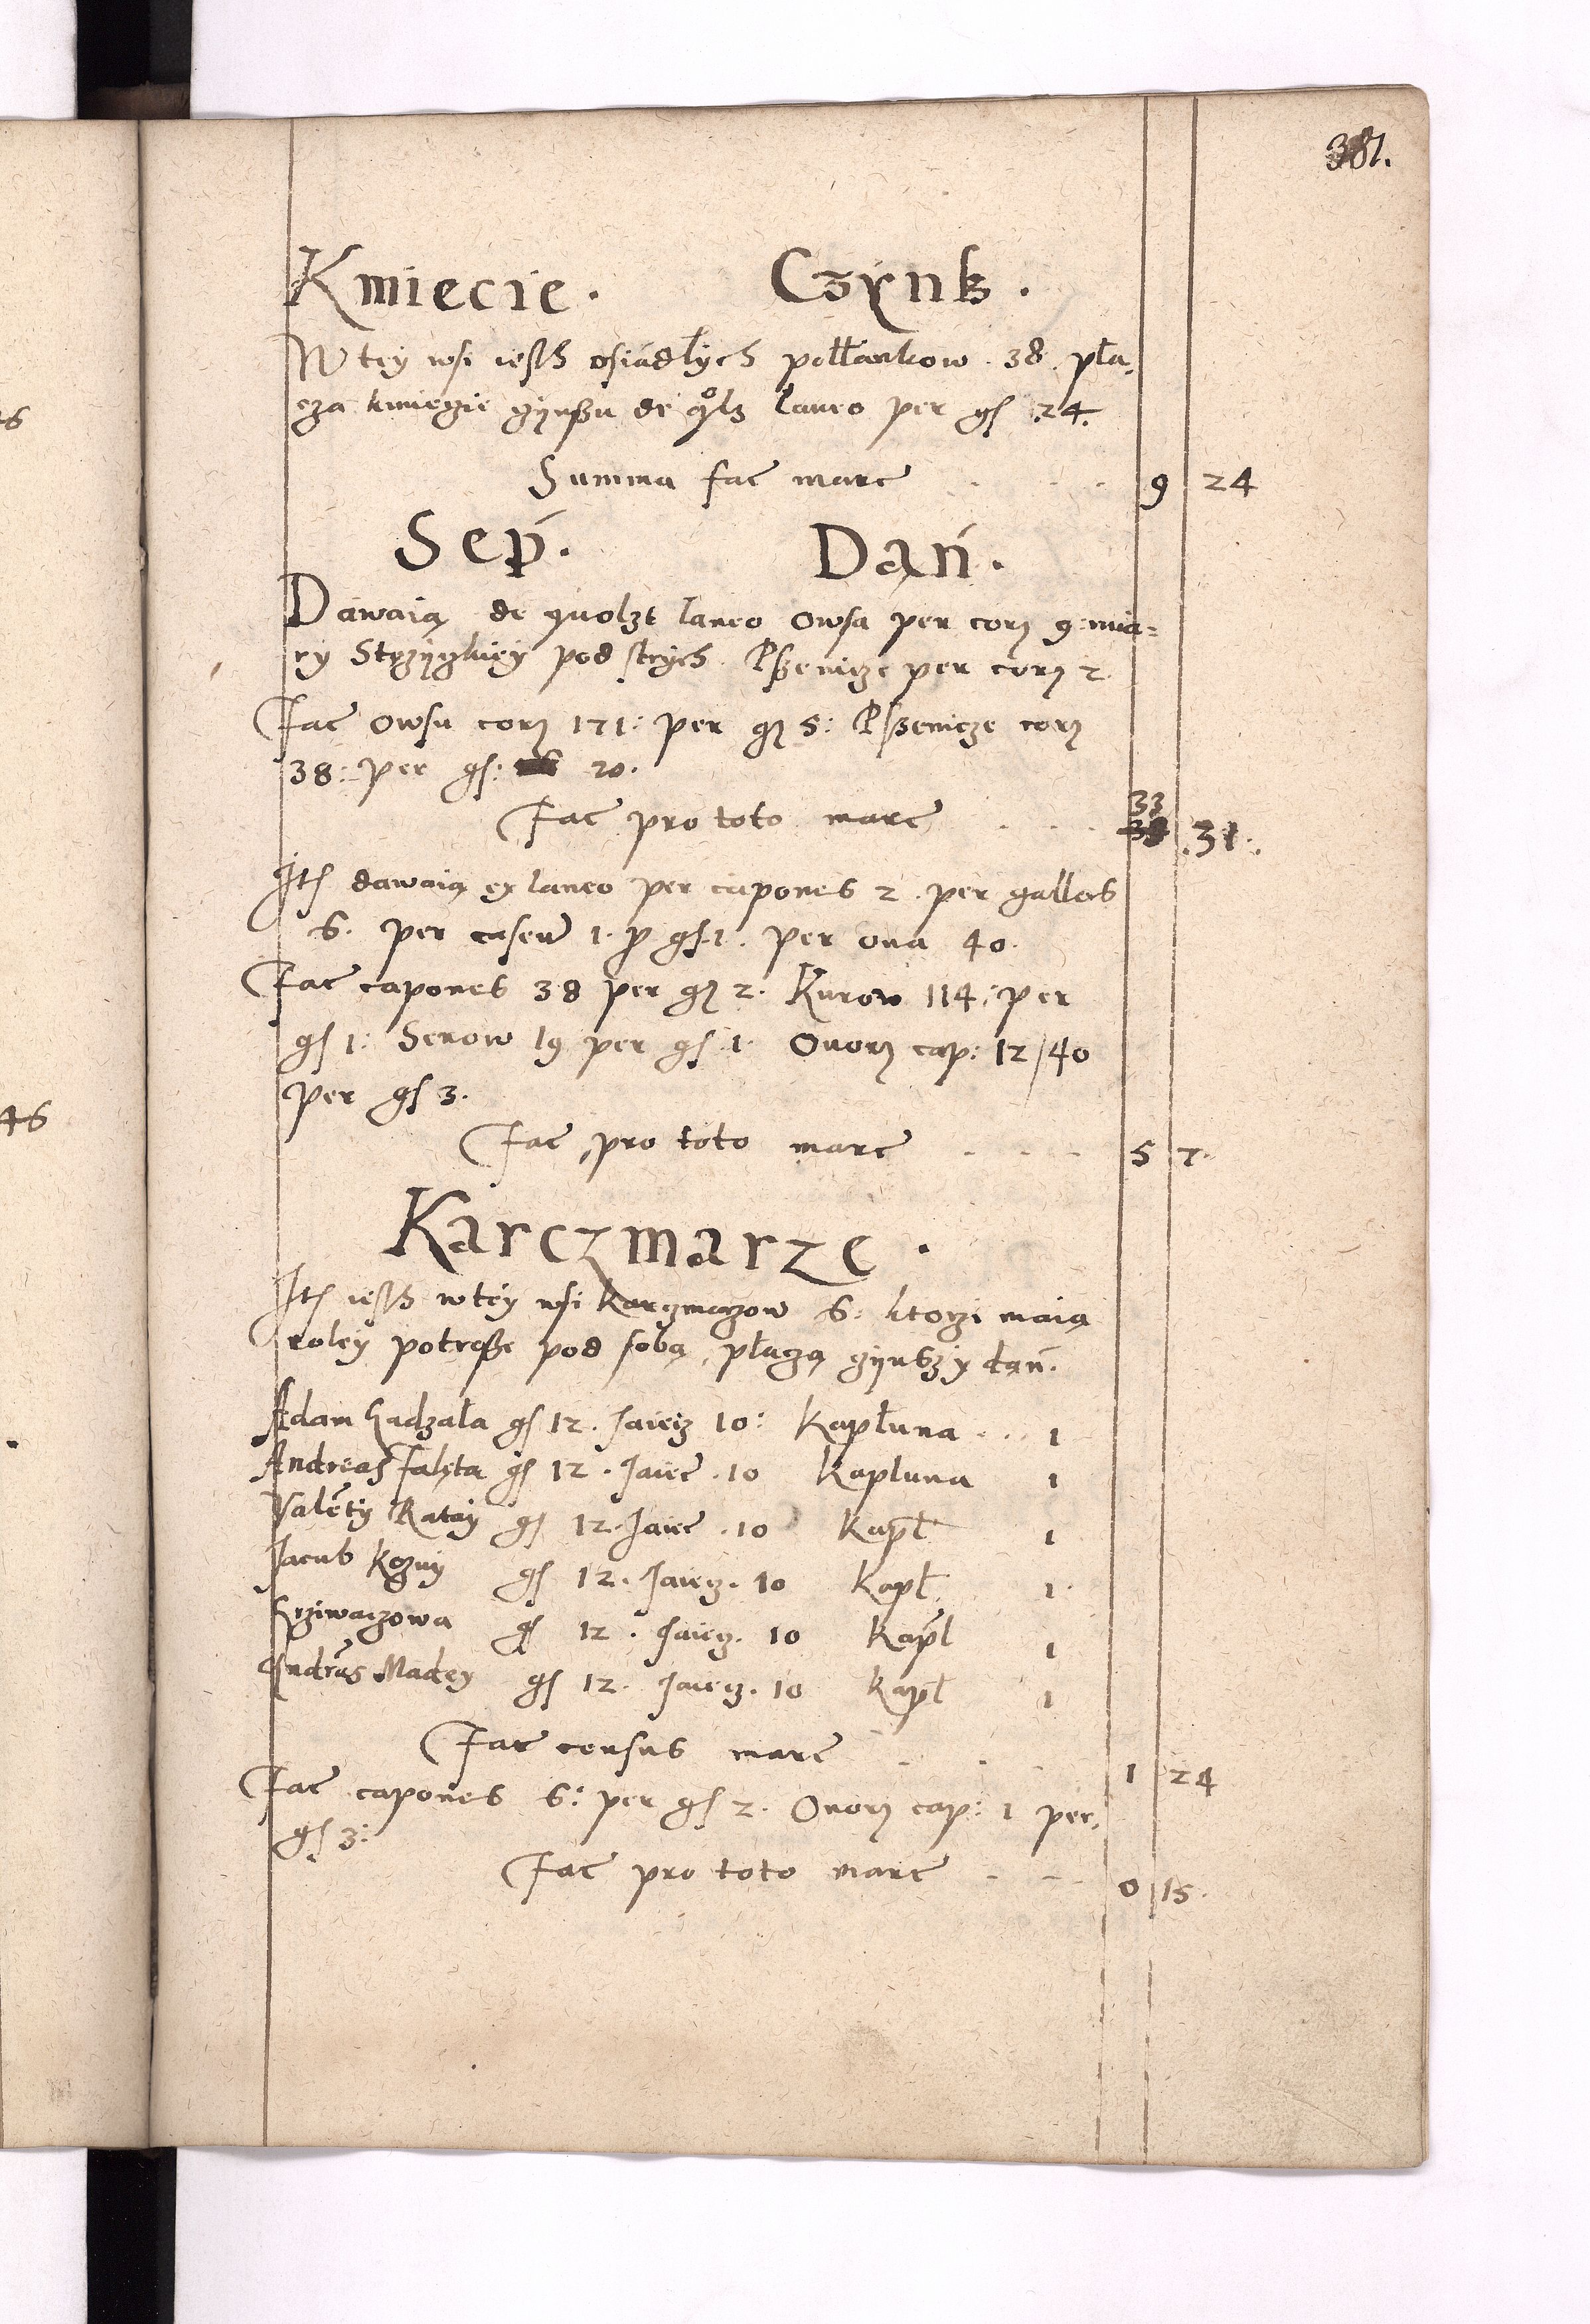 381.
Kmiecie. Czynß.
W tey wsi iesth osiadłych połłankow. 38. pła,
czą kmiecie czynßu de qolz laneo per gs 24.
Summa fac marc 9 24
Sep. Dań.
Dawaią de quolzt laneo owsa per corz 9 mia=
ry Stęzyczkiey pod strych. Pßenicze per corz 2.
Fac owsu corz 171: per gs 5: Pszenicze corz
38: per gs: 20.
Fac pro toto marc 33 31.
Its dawaią ex laneo per capones 2. per gallos
6. per caseu 1. p gs. 1. per oua 40.
Fac capones 38 per gs 2. Kurow 114: per
gs 1: Serow 19 per gs 1. Ouorz cap: 12/40
per gs 3.
Fac pro toto marc 5 7.
Karczmarze.
Its iesth w tey wsi Karczmarzow 6. ktorzi maią
roley potroße pod sobą, płaczą czynsz y dań.
Adam Gadzała gs 12. Jaiecz 10: Kapłuna 1
Andreas Falęta gs 12. Jaiec. 10 Kapłuna 1
Valenty Ratay gs 12. Jaiec. 10 Kapł 1
Jacub gs 12. Jaiecz. 10 Kapł 1.
Krziwaczowa gs 12. Jaiecz. 10 Kapl 1
Andrus Madey gs 12. Jaiecz. 10 Kapł 1
Fac census marc 1 24
Fac capones 6: per gs 2. Ouorz cap: 1 per,
gs 3:
Fac pro toto marc 0 15.